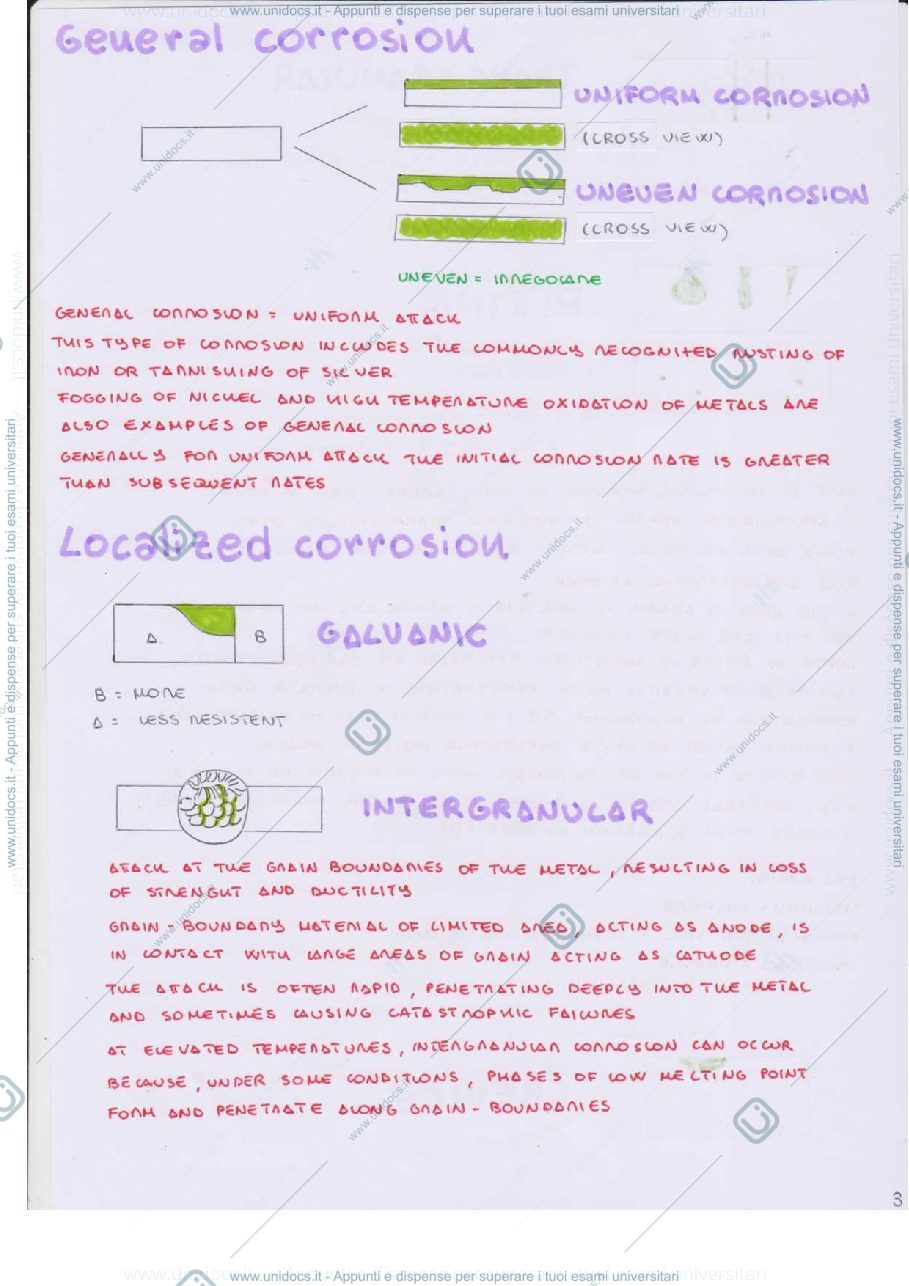 www.unidocs.it - Appunti e dispense per superare i tuoi esami universitari
General corrosion
UNIFORM CORROSION
(CROSS VIEW)
UNEVEN CORROSION
(CROSS VIEW)
UNEVEN = IRREGOLARE
GENERAL CORROSION = UNIFORM ATTACK
THIS TYPE OF CORROSION INCLUDES THE COMMONLY RECOGNITED RUSTING OF
IRON OR TARNISHING OF SILVER
FOGGING OF NICKEL AND HIGH TEMPERATURE OXIDATION OF METALS ARE
ALSO EXAMPLES OF GENERAL CORROSION
GENERALLY FOR UNIFORM ATTACK THE INITIAL CORROSION RATE IS GREATER
THAN SUBSEQUENT RATES
Localized corrosion
A B
GALVANIC
B = MORE
A = LESS RESISTENT
INTERGRANULAR
ATTACK AT THE GRAIN BOUNDARIES OF THE METAL, RESULTING IN LOSS
OF STRENGHT AND DUCTILITY
GRAIN - BOUNDARY MATERIAL OF LIMITED AREA, ACTING AS ANODE, IS
IN CONTACT WITH LARGE AREAS OF GRAIN ACTING AS CATHODE
THE ATTACK IS OFTEN RAPID, PENETRATING DEEPLY INTO THE METAL
AND SOMETIMES CAUSING CATASTROPHIC FAILURES
AT ELEVATED TEMPERATURES, INTERGRANULAR CORROSION CAN OCCUR
BECAUSE, UNDER SOME CONDITIONS, PHASES OF LOW MELTING POINT
FORM AND PENETRATE ALONG GRAIN - BOUNDARIES
3
www.unidocs.it - Appunti e dispense per superare i tuoi esami universitari
www.unidocs.it - Appunti e dispense per superare i tuoi esami universitari
www.unidocs.it - Appunti e dispense per superare i tuoi esami universitari